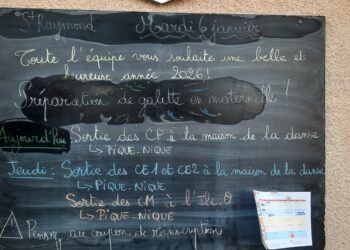 St Raymond
Mardi 6 janvier
Toute l'équipe vous souhaite une belle et
heureuse année 2026!
Préparation de galette en maternelle!
Aujourd'hui Sortie des CP à la maison de la danse
↳ PIQUE-NIQUE
Jeudi: Sortie des CE1 et CE2 à la maison de la danse
↳ PIQUE-NIQUE
Sortie des CM à l'Ile.O
↳ PIQUE-NIQUE
Pensez au coupon de réinscription